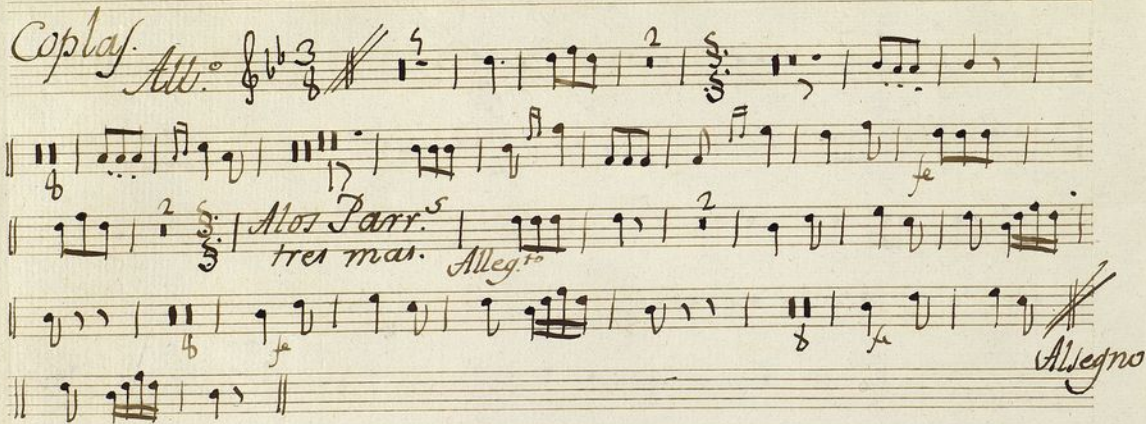 Coplas.
All.º 3 8 5 2 7
8 17 fe
2 Alos Parr.s 2
tres mas. Alleg.to
8 fe 8 fe
Alsegno